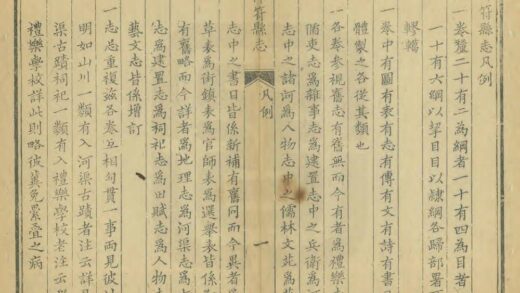 符縣志凡例
一卷釐二十有二為綱者一十有四為目者
一十有六綱以挈目目以隸綱各歸部署
轇轕
一卷中有圖有表有志有傳有文有詩有書
體製之各從其類也
一各卷參視舊志有舊無而今有者為禮樂
循吏志為雜事志為建置志中之兵衛為河
志中之諸河為人物志中之儒林文苑為
符縣志
凡例
一
志中之書目皆係新補有舊同而今異者
表為街鎮表為官師表為選舉表皆係
有舊略而今詳者為地理志為河渠志為
志為建置志為祠祀志為田賦志為人物
藝文志皆係增訂
一志忌重復茲各卷互相勾貫一事而見彼
明如山川一類有入河渠古蹟者注云詳見
渠古蹟祠祀一類有入禮樂學校者注云
禮樂學校詳此則略彼冀免累疊之病